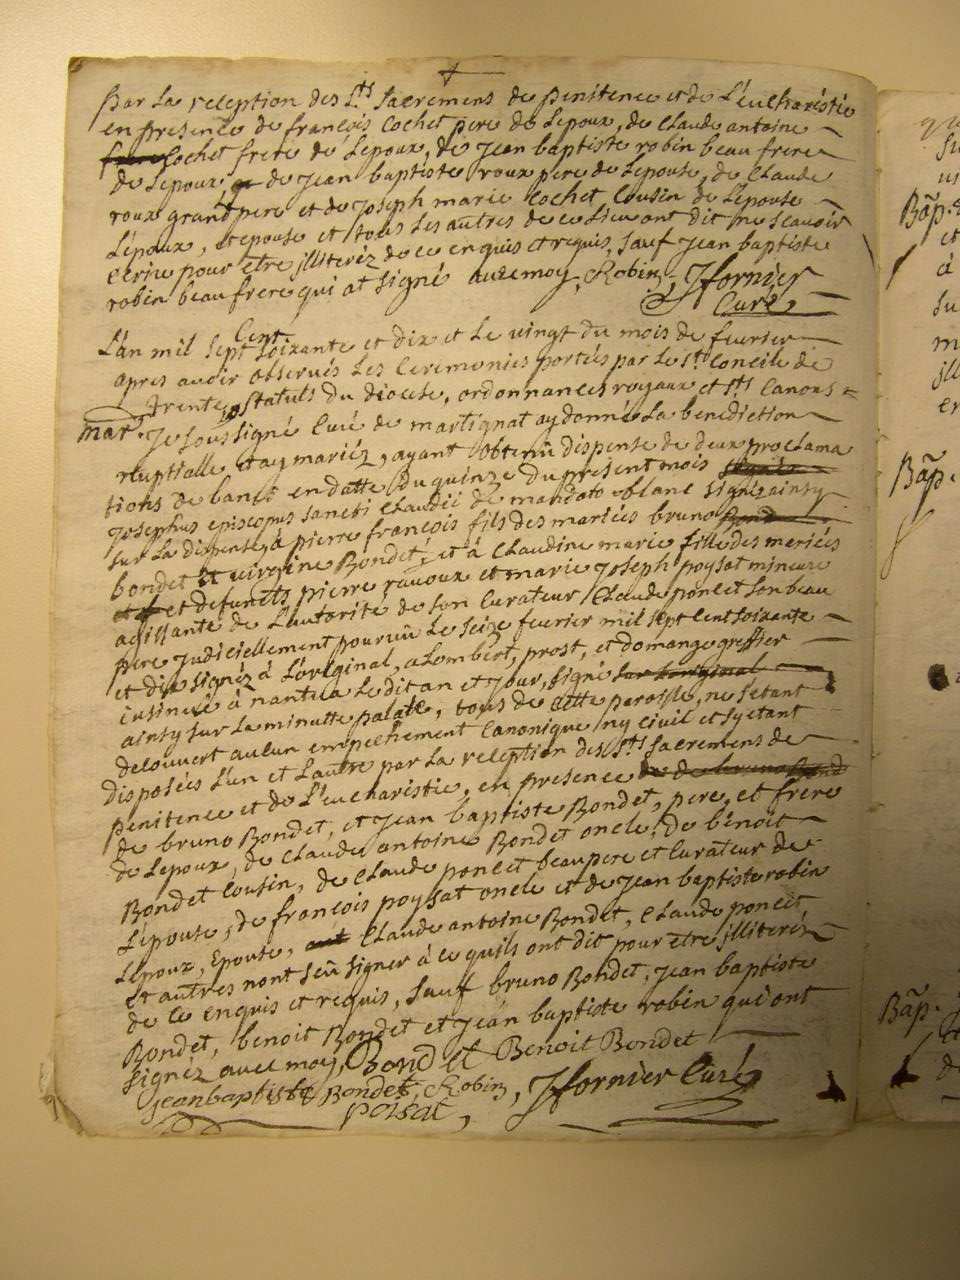 par la reception des Sts. Sacremens de penitence et de L'eucharistie
en presence de françois Cochet pere de Lepoux, de Claude antoine
Cochet frere de Lepoux, de Jean baptiste robin beau frere
de Lepoux, de Jean baptiste roux pere de Lepouse, de Claude
roux grand pere et de Joseph marie Cochet Cousin de Lepouse
Lépoux, et epouse et tous Les autres de ce Lieu ont dit ne Scavoir
ecrire pour etre illiterez de ce enquis et requis, Sauf Jean baptiste
robin beau frere qui at Signé avec moy, Robin, Jfornier
Curé,
L'an mil Sept Cent Soixante et dix et Le vingt du mois de fevrier
apres avoir observés Les Ceremonies portées par Le St. Concile de
Trente, Statuts du diocese, ordonnances royaux et Sts. Canons =
Mar. Je Soussigné Curé de martignat ay donné La benediction
nuptialle et ay mariéz, ayant obtenû dispense de deux proclama
tions de bancs en datte du quinze du present mois
Josephus episcopus Sancti Claudii de mandato blanc Signéz ainsy
Sur La dispense, à pierre françois fils des mariées bruno
bondet et virgine Bondet, et à Claudine marie fille des mariées
et defuncts pierre ravoux et marie Joseph poysat mineure
agissante de L'autorité de Son Curateur Claude poncet Son beau
pere Judiciellement pourvû Le Seize fevrier mil Sept Cent Soixante
et dix Signéz à L'original, a Lombert, prost, et domange greffier
insinué à nantua Le dit an et Jour, Signé
ainsy Sur La minutte, tous de cette paroisse, ne Setant
decouvert aucun empechement Canonique ny civil et Syetant
disposées L'un et Lautre par La reception des Sts. Sacremens de
penitence et de L'eucharistie, en presence
de bruno Bondet, et Jean baptiste Bondet, pere, et frere
de Lepoux, de Claude antoine Bondet oncle, de bênoit
Bondet Cousin, de Claude poncet beau pere et Curateur de
L'epouse, de françois poysat oncle et de Jean baptiste robin
Lepoux, Epouse, Claude antoine Bondet, Claude poncet
et autres nont Scû Signer à ce quils ont dit pour etre illiteréz
de ce enquis et requis, Sauf bruno Bondet, Jean baptiste
Bondet, benoit Bondet et Jean baptiste robin qui ont
Signéz avec moy, Bondet Benoit Bondet
Jean baptiste Bondet, Robin, Jfornier Curé
poisat,
Bâp.
Bâp.
Bâp.